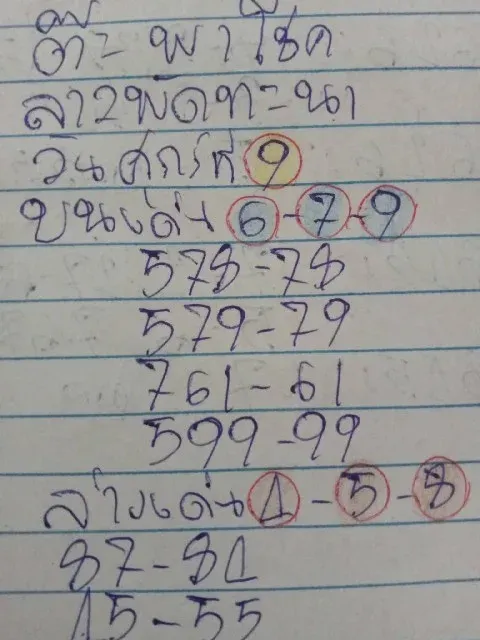 ต๊ะ พาโชค
ลาวพัดทะนา
วันศุกร์ที่ 9
บนเด่น 6-7-9
578-78
579-79
761-61
599-99
ล่างเด่น 1-5-8
87-81
15-55